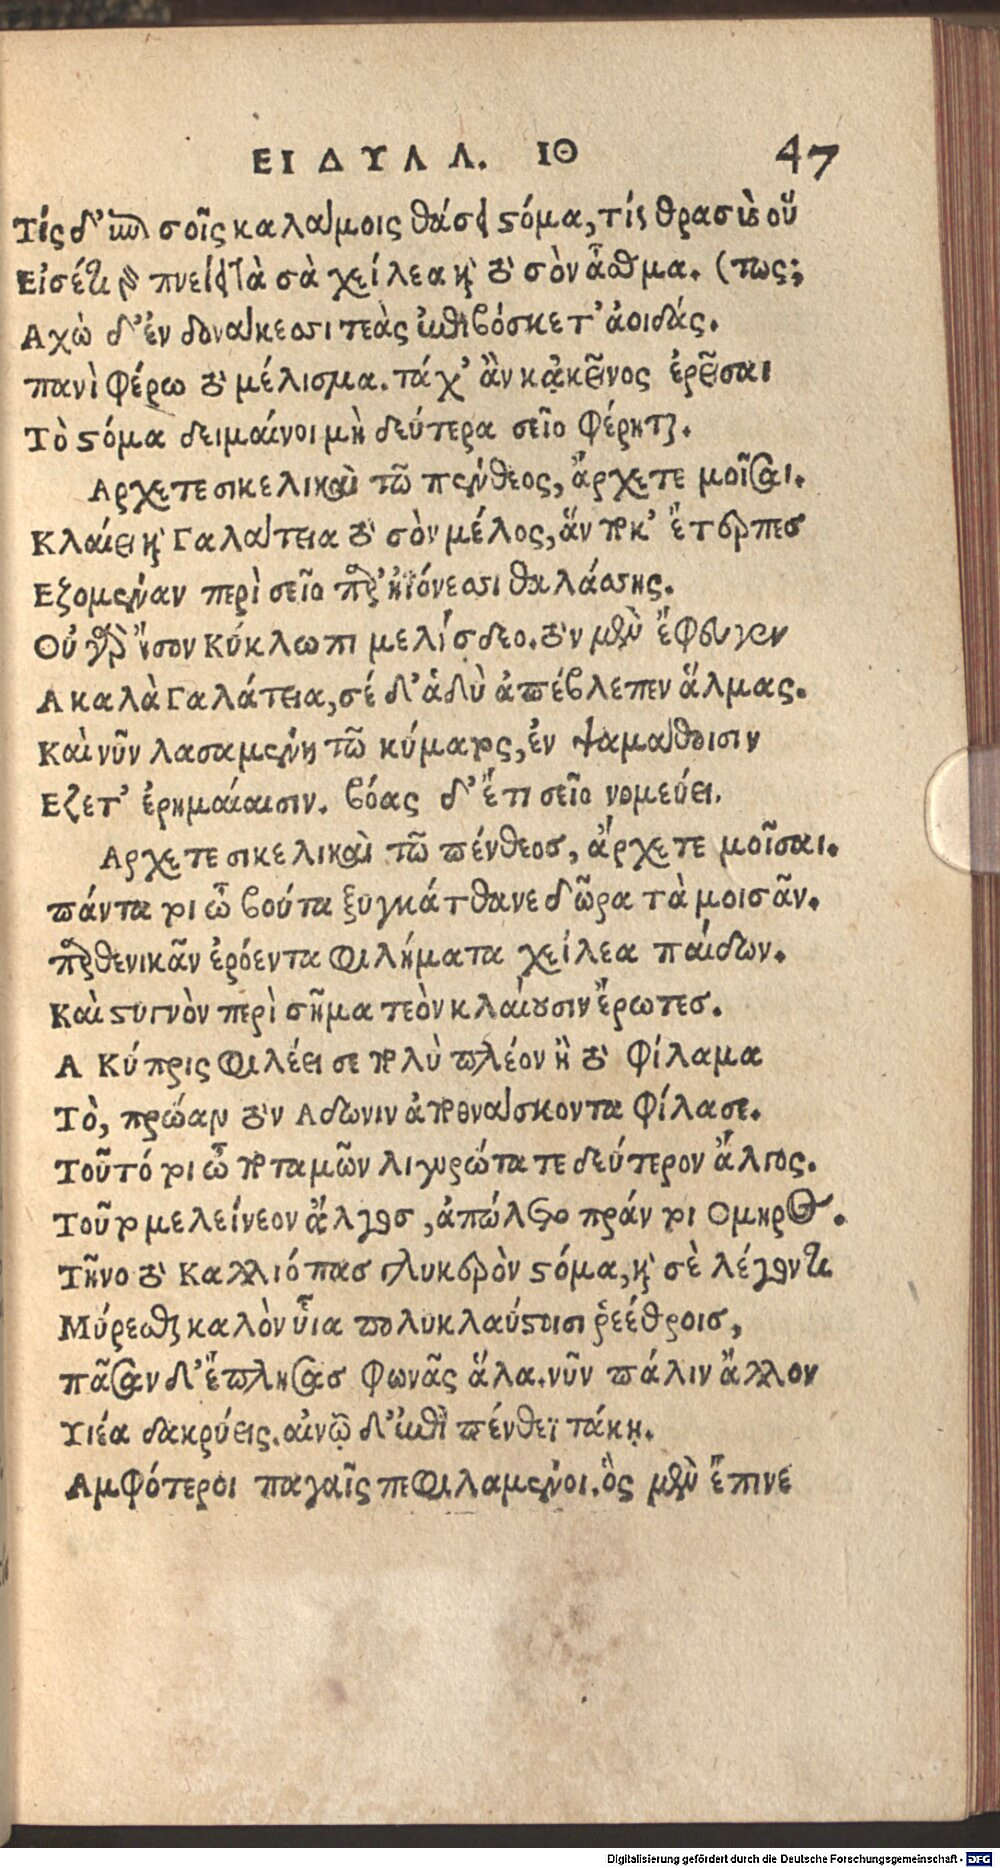 ΕΙΔΥΛΛ. ΙΘ 47
Τίς δ' ἐπὶ σοῖς καλάμοις θάσει στόμα, τίς θρασὺς οὕ
Εἰσέτι γὰρ πνείει τὰ σὰ χείλεα καὶ τὸ σὸν ἆσθμα. (τως;
Αχὼ δ' ἐν δονάκεσσι τεὰς ἐπιβόσκετ' ἀοιδάς.
πανὶ φέρω τὸ μέλισμα. τάχ' ἂν κᾀκεῖνος ἐρεῖσαι
Τὸ στόμα δειμαίνοι μὴ δεύτερα σεῖο φέρηται.
Αρχετε σικελικαὶ τῶ πένθεος, ἄρχετε μοῖσαι.
Κλαίει καὶ Γαλάτεια τὸ σὸν μέλος, ἅν ποκ' ἔτερπες
Εζομέναν περὶ σεῖο παρ' ηϊόνεσσι θαλάσσης.
Οὐ γὰρ ἴσον Κύκλωπι μελίσδεο. τὸν μὲν ἔφευγεν
Α καλὰ Γαλάτεια, σέ δ' ἁδὺ ἀπέβλεπεν ἅλμας.
Καὶ νῦν λασαμένη τῶ κύματος, ἐν ψαμάθοισιν
Εζετ' ἐρημαίαισιν. βόας δ' ἔτι σεῖο νομεύει.
Αρχετε σικελικαὶ τῶ πένθεος, ἄρχετε μοῖσαι.
πάντα τοι ὦ βούτα ξυγκάτθανε δῶρα τὰ μοισᾶν.
παρθενικᾶν ἐρόεντα φιλήματα χείλεα παίδων.
Καὶ στυγνὸν περὶ σῆμα τεὸν κλαίουσιν ἔρωτες.
Α Κύπρις φιλέει σε πολὺ πλέον ἢ τὸ φίλαμα
Τὸ, πρώαν τὸν Αδωνιν ἀποθνάσκοντα φίλασε.
Τοῦτό τοι ὦ ποταμῶν λιγυρώτατε δεύτερον ἄλγος.
Τοῦτο μελείνεον ἄλγος, ἀπώλετο πράν τοι Ομηρος.
Τῆνο τὸ Καλλιόπας γλυκερὸν στόμα, καὶ σὲ λέγοντι
Μύρεσθαι καλὸν ὗια πολυκλαύστοισι ῥεέθροις,
πᾶσαν δ' ἔπλησας φωνᾶς ἅλα. νῦν πάλιν ἄλλον
Υιέα δακρύεις. αἰνῷ δ' ἐπὶ πένθεϊ τάκῃ.
Αμφότεροι παγαῖς πεφιλαμένοι. ὃς μὲν ἔπινε
Digitalisierung gefördert durch die Deutsche Forschungsgemeinschaft - DFG